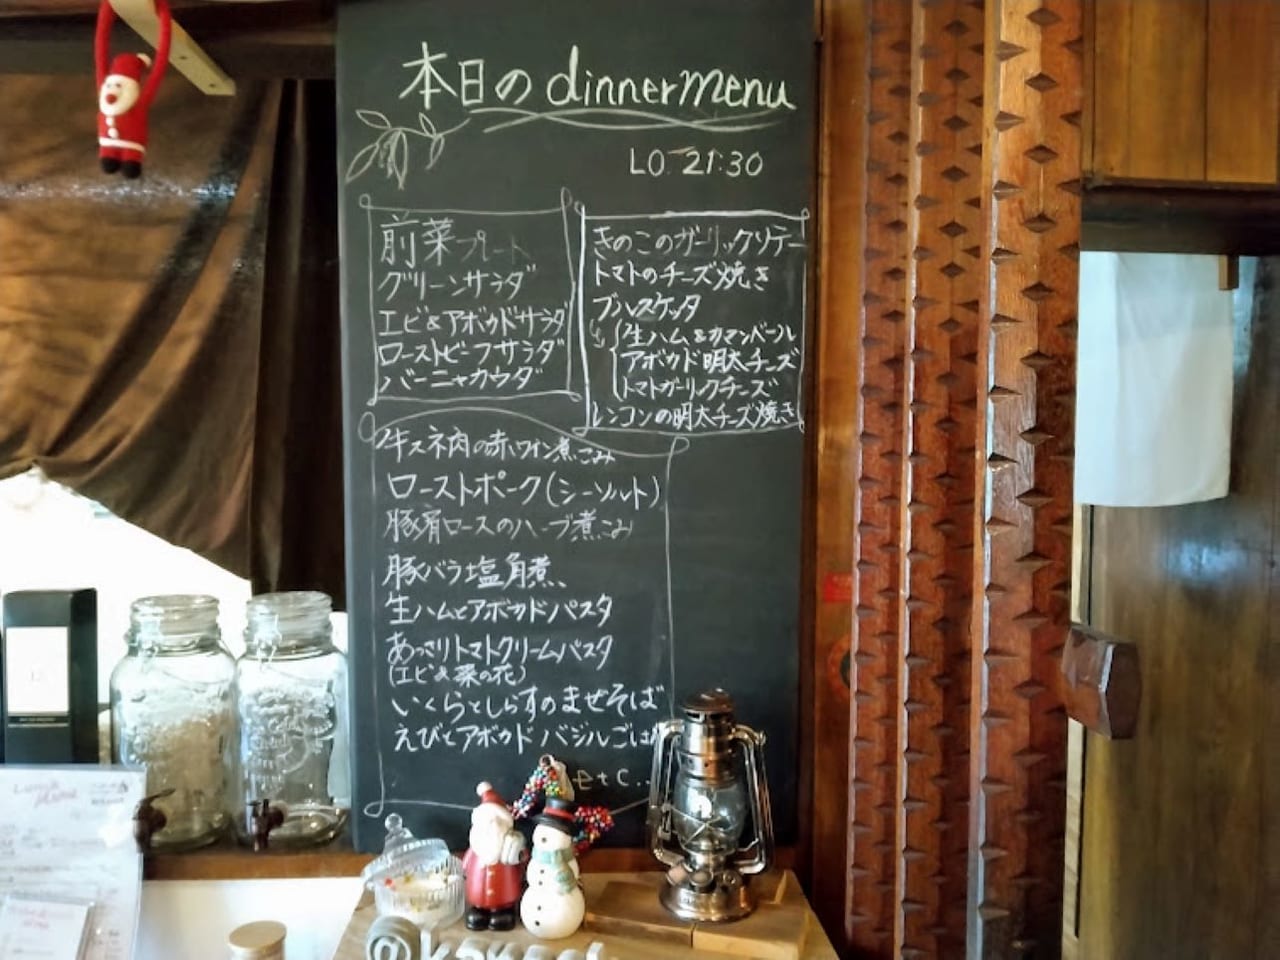 本日のdinner menu
LO. 21:30
前菜プレート
グリーンサラダ
エビ&アボカドサラダ
ローストビーフサラダ
バーニャカウダ
きのこのガーリックソテー
トマトのチーズ焼き
ブルスケッタ
生ハム&カマンベール
アボカド明太チーズ
トマトガーリックチーズ
レンコンの明太チーズ焼き
牛スネ肉の赤ワイン煮こみ
ローストポーク(シーソルト)
豚肩ロースのハーブ煮こみ
豚バラ塩角煮
生ハムとアボカドパスタ
あっさりトマトクリームパスタ
(エビ&菜の花)
いくらとしらすのまぜそば
えびとアボカドバジルごは
etc...
Lunch
Menu